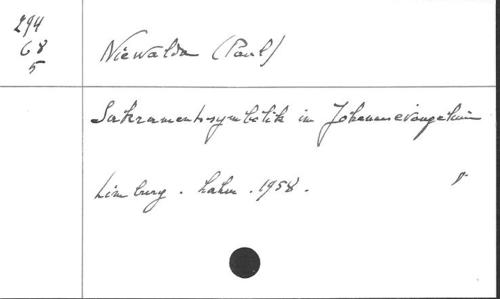 294
68
5
Niewalda (Paul)
Sakramentssymbolik im Johannesevangelium
Limburg. Lahn. 1958.